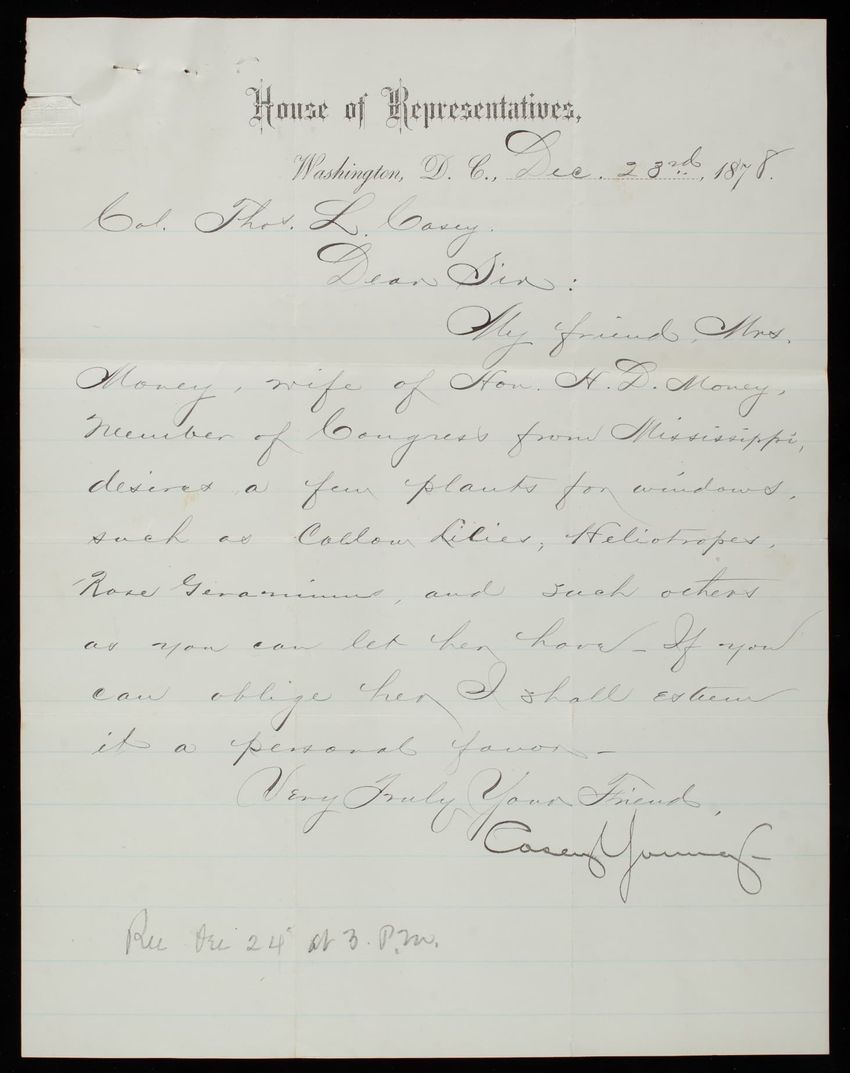 House of Representatives,
Washington, D. C., Dec. 23rd, 1878.
Col. Thos. L. Casey.
Dear Sir:
My friend, Mrs.
Money, wife of Hon. H. D. Money,
Member of Congress from Mississippi,
desires a few plants for windows,
such as Callow Lilies, Heliotropes,
Rose Geraniums, and such others
as you can let her have - If you
can oblige her I shall esteem
it a personal favor -
Very Truly Your Friend,
Casey Young
Rec Dec 24 at 3. P.M.